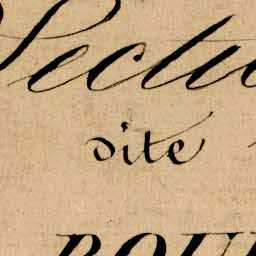 Secti
dite
ROU